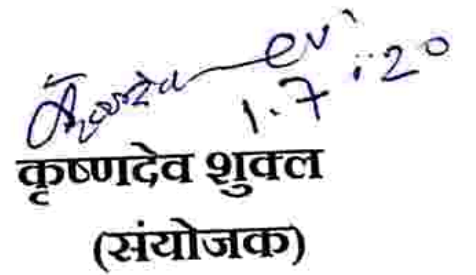 1.7.20
कृष्णदेव शुक्ल
(संयोजक)